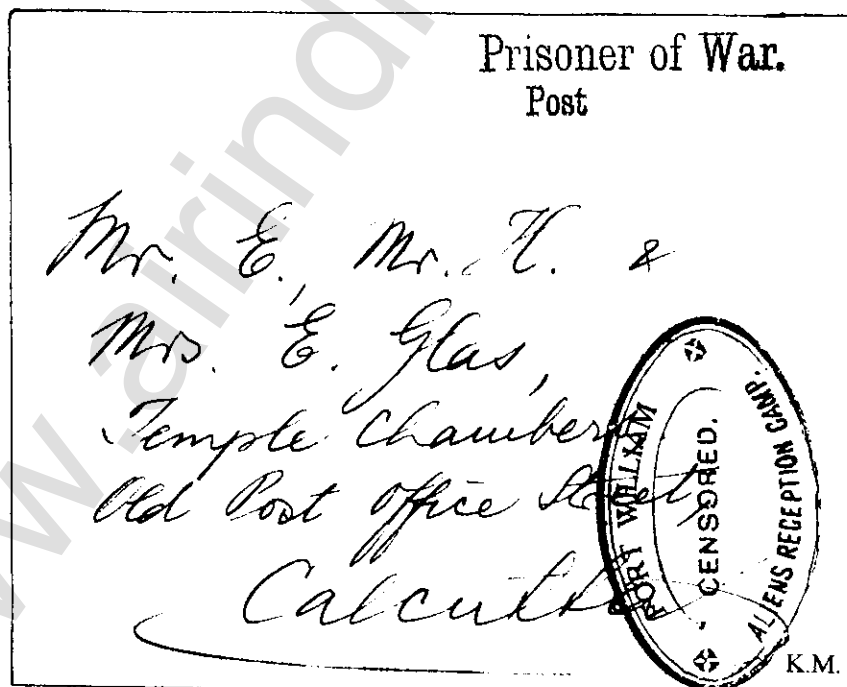 Prisoner of War.
Post
Mr. E., Mr. H. &
Mrs. E. Glas,
Temple Chambers
Old Post Office Street,
Calcutta
FORT WILLIAM
CENSORED.
ALIENS RECEPTION CAMP.
K.M.
www.airindi